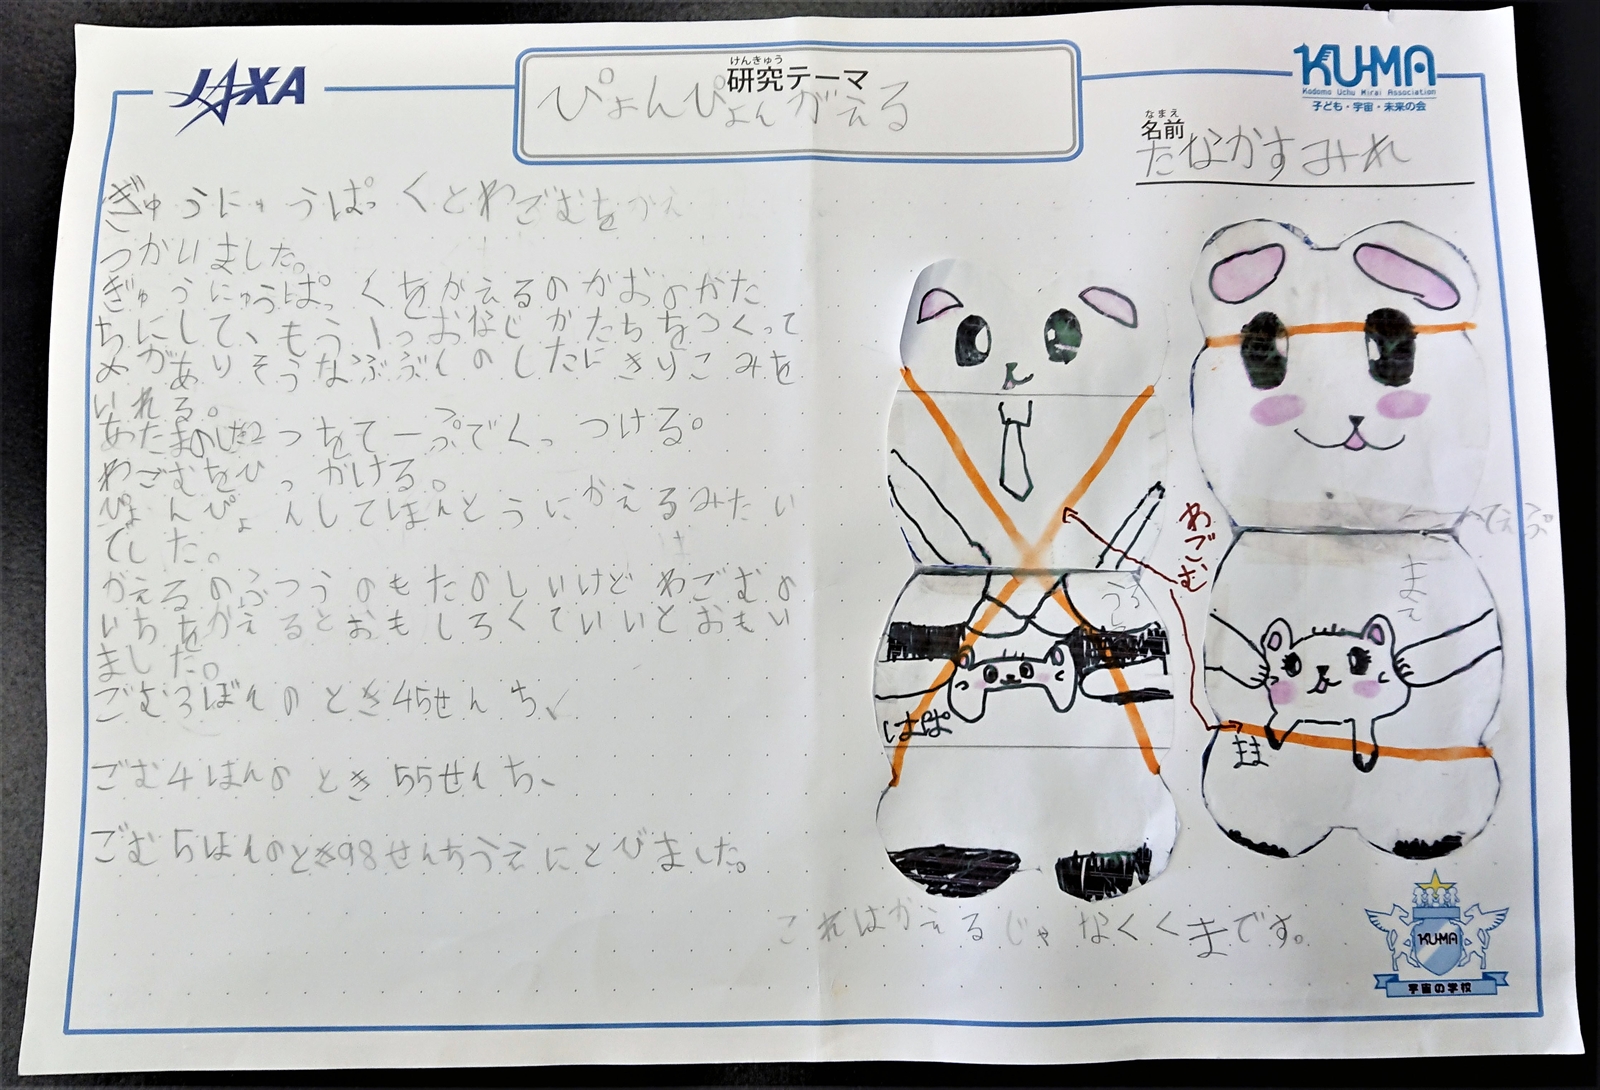 JAXA
けんきゅう
研究テーマ
ぴょんぴょんがえる
KU-MA
Kodomo Uchu Mirai Association
子ども・宇宙・未来の会
なまえ
名前
たなかすみれ
ぎゅうにゅうぱっくとわごむを
つかいました。
ぎゅうにゅうぱっくをかえるのかおのかた
ちにして、もう1つおなじかたちをつくって
めがありそうなぶぶんのしたにきりこみを
いれる。
あたまのした2つをてーぷでくっつける。
わごむをひっかける。
ぴょんぴょんしてほんとうにかえるみたい
でした。
かえるのふつうのもたのしいけどわごむの
いちをかえるとおもしろくていいとおもい
ました。
ごむ3ぼんのとき45せんち、
ごむ4ほんのとき55せんち、
ごむ5ほんのとき98せんちうえにとびました。
わごむ
てえぷ
まえ
うしろ
ぱぱ
まま
これはかえるじゃなくくまです。
KU-MA
宇宙の学校